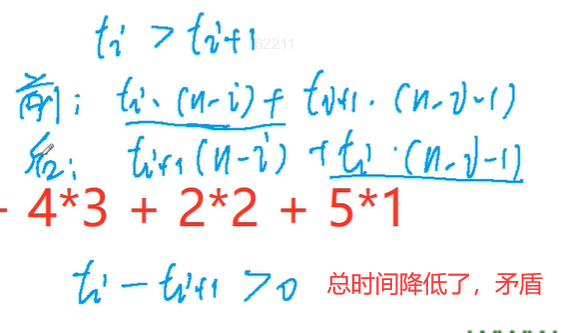 tᵢ > tᵢ₊₁
62211
前: tᵢ · (n-i) + tᵢ₊₁ · (n-i-1)
后: tᵢ₊₁ (n-i) + tᵢ · (n-i-1)
4*3 + 2*2 + 5*1
tᵢ - tᵢ₊₁ > 0 总时间降低了，矛盾